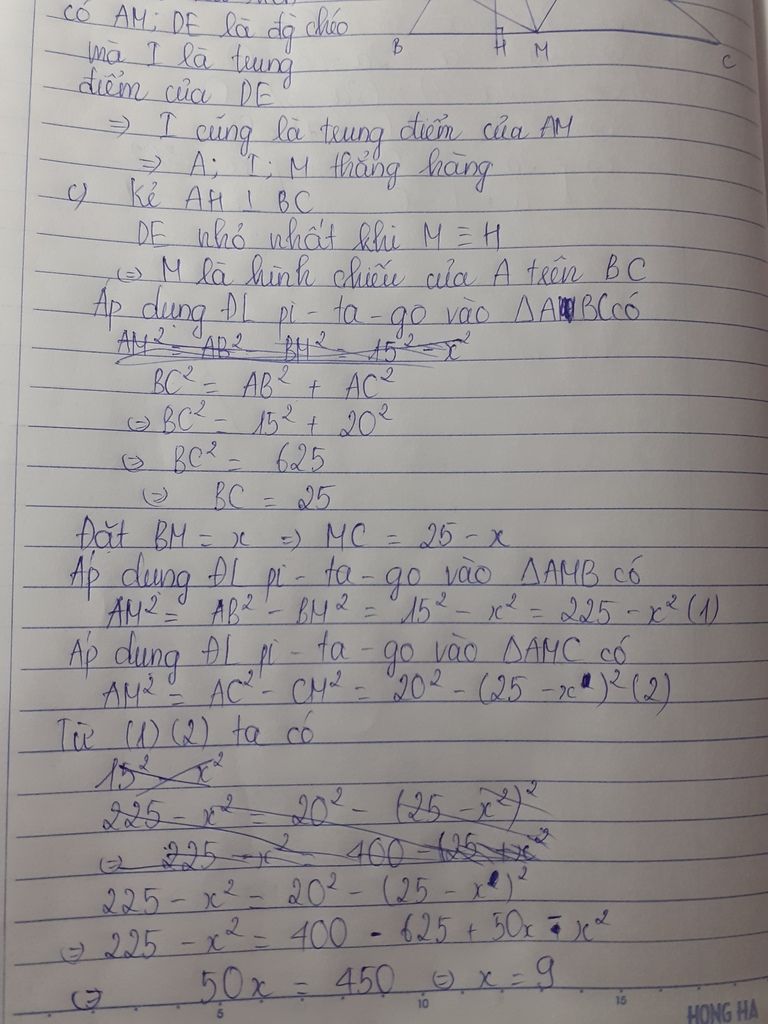 có AM; DE là đg chéo
B H M C
mà I là trung
điểm của DE
=> I cũng là trung điểm của AM
=> A; I; M thẳng hàng
c) Kẻ AH ⊥ BC
DE nhỏ nhất khi M ≡ H
(=) M là hình chiếu của A trên BC
Áp dụng ĐL pi-ta-go vào ΔABC có
AM² = AB² - BM² = 15² - x²
BC² = AB² + AC²
(=) BC² = 15² + 20²
(=) BC² = 625
(=) BC = 25
Đặt BM = x => MC = 25 - x
Áp dụng ĐL pi-ta-go vào ΔAMB có
AM² = AB² - BM² = 15² - x² = 225 - x² (1)
Áp dụng ĐL pi-ta-go vào ΔAMC có
AM² = AC² - CM² = 20² - (25 - x)² (2)
Từ (1) (2) ta có
15² - x²
225 - x² = 20² - (25 - x²)²
(=) 225 - x² = 400 - (25 + x²
225 - x² = 20² - (25 - x)²
=> 225 - x² = 400 - 625 + 50x - x²
(=) 50x = 450 (=) x = 9
5 10 15 HONG HA